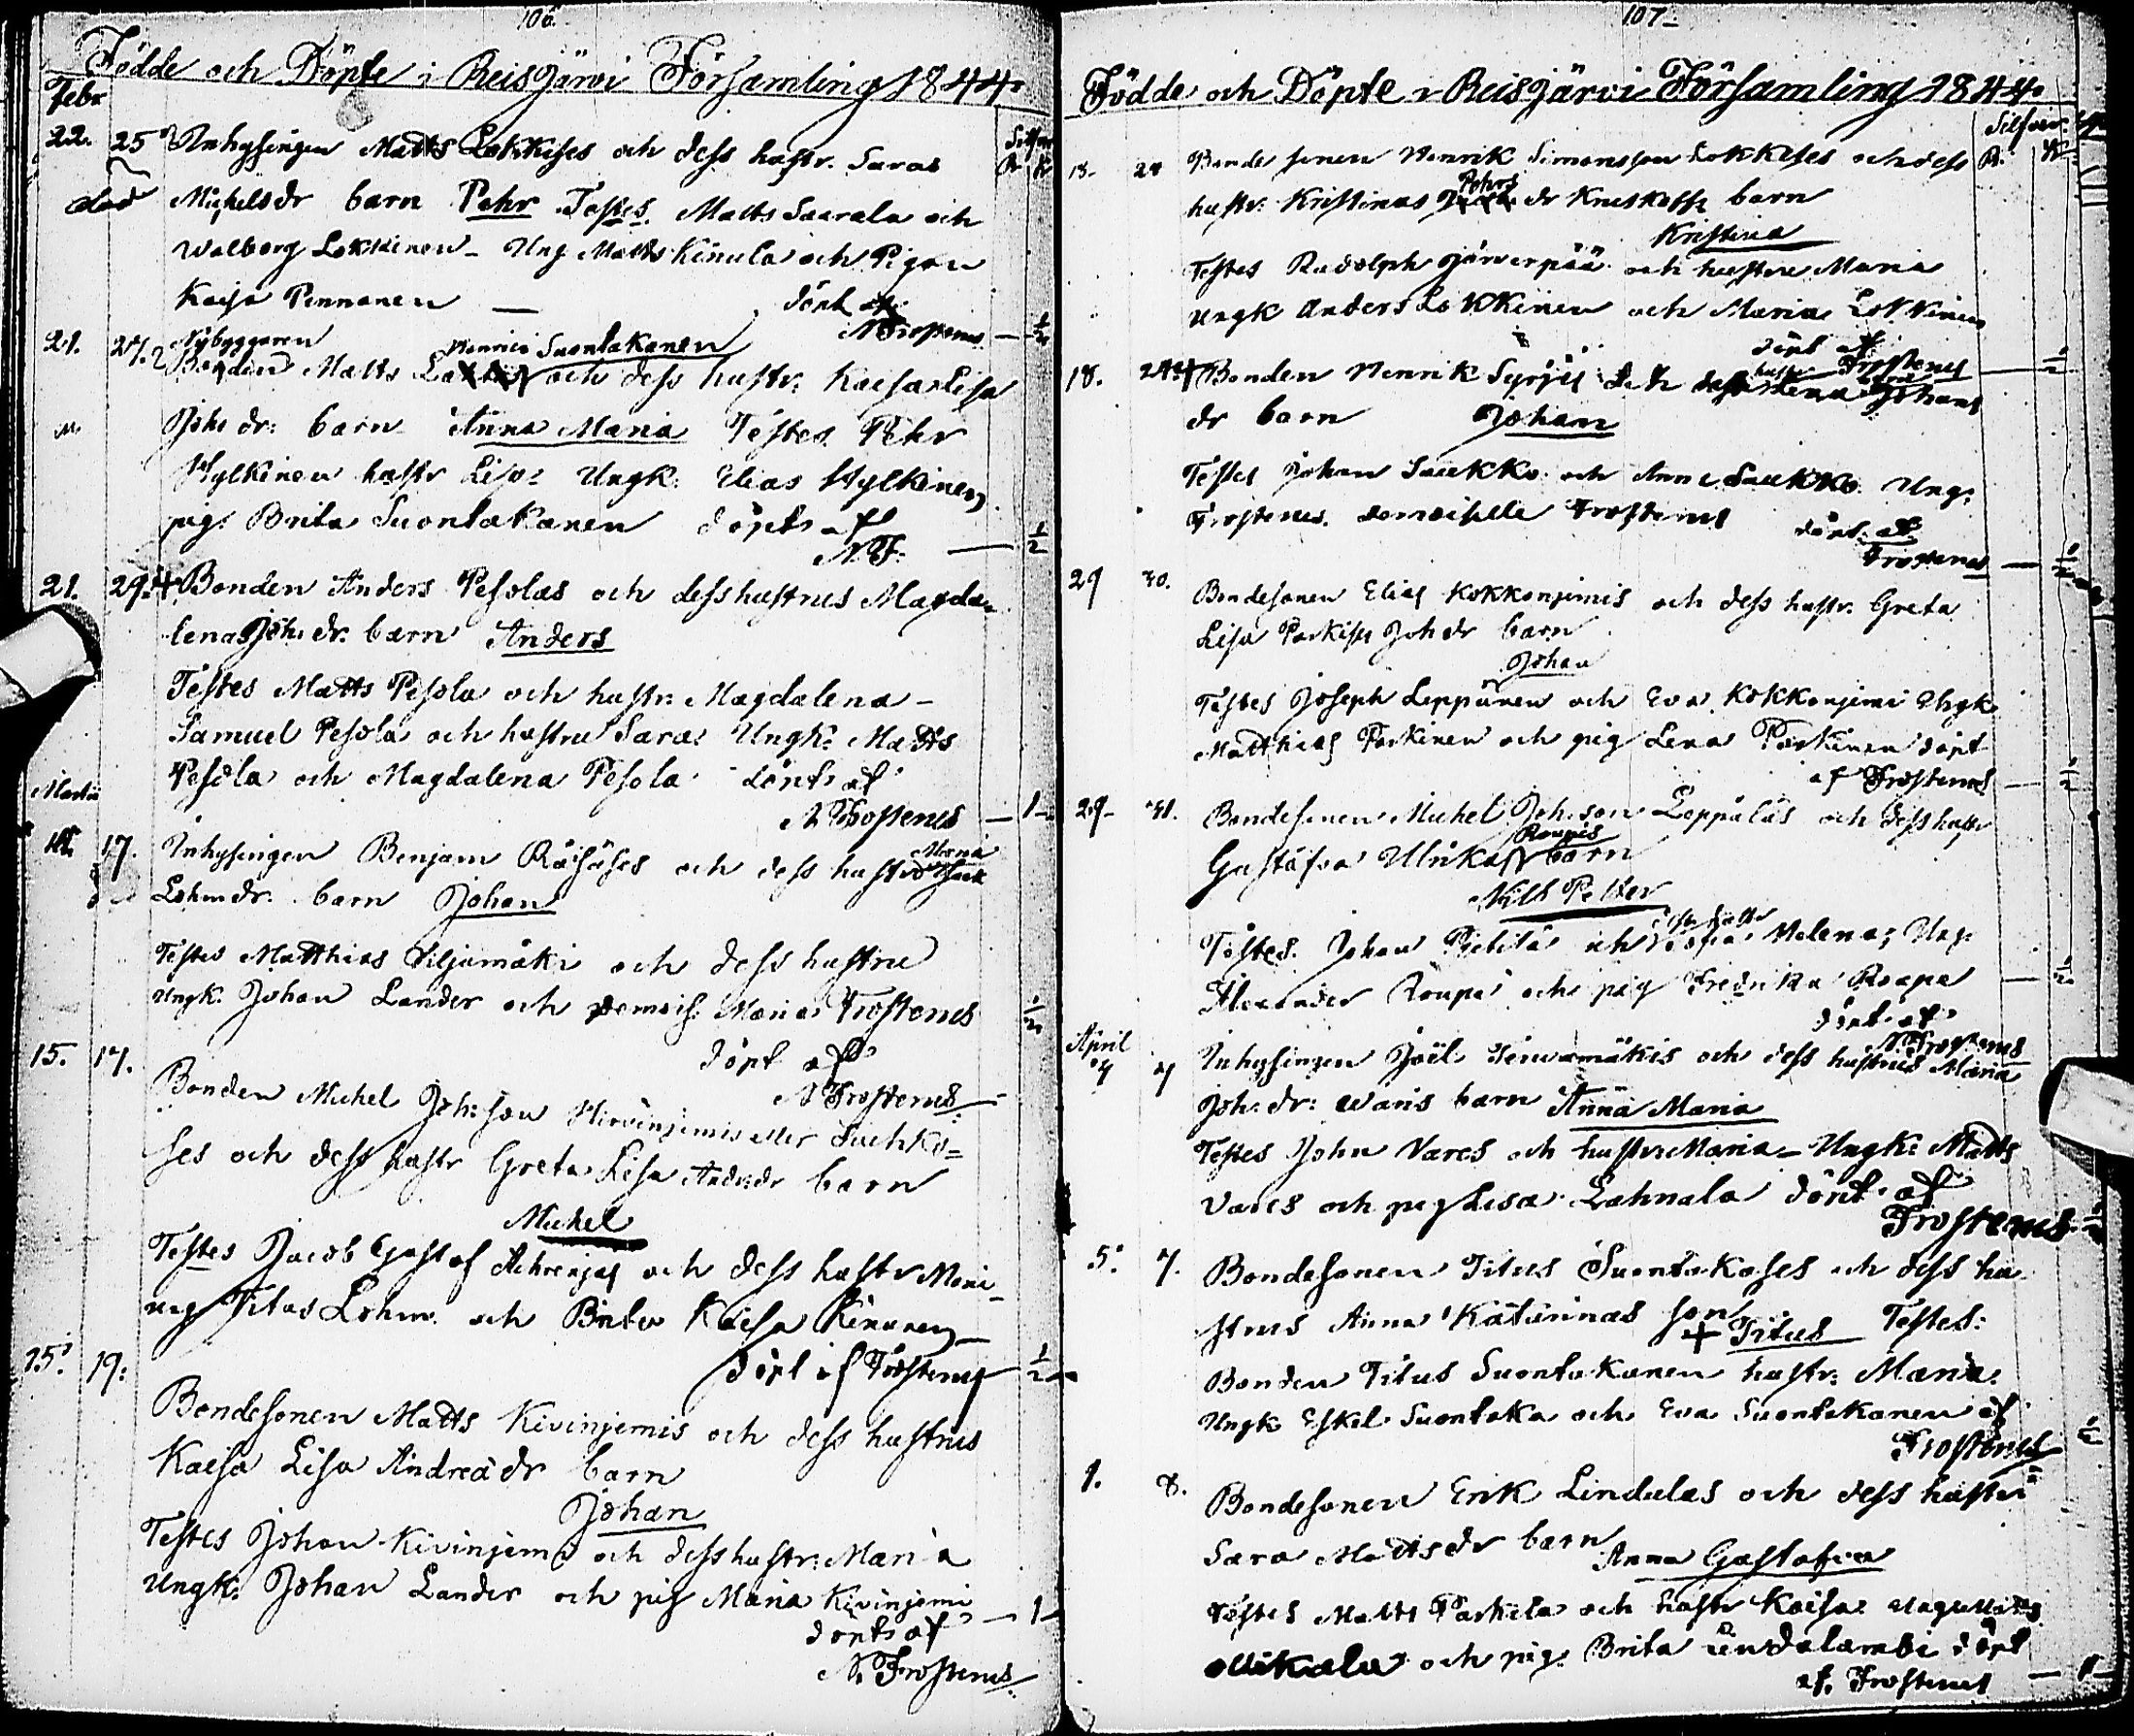 106.
Födde och Döpte i Reisjärvi Församling 1844.
Febr
Silfver
R. K
22. 25 Inhysingen Matts Lokkises och dess hustr. Saras
död Michelsdr barn Pehr Testes Matts Saarala och
Walborg Lokkinen - Ung Matts Kinula och Pigan
Kaisa Pennanen — döpt af
N Frosterus — 1/2
Nybyggaren Henrici Suontakanen
21. 27. Bonden Matts och dess hustr. Kaisa Lisa
Joh: dr: barn Anna Maria Testes Pehr
Hylkinen hustr Lisa: Ungk. Elias Hylkinen
pig: Brita Suontakanen döpt af
N. F. — 1/2
21. 29. + Bonden Anders Pesolas och dess hustrus Magda-
lenas Joh: dr. barn Anders
Testes Matts Pesola och hustr: Magdalena -
Samuel Pesola och hustru Sara: Ungk: Matts
Pesola och Magdalena Pesola döpt af
N Frosterus — 1 —
Martii
17. Inhysingen Benjam Räisäses och dess hustr Maria
Lohm dr. barn Johan
Testes Matthias Siljamäki och dess hustru
Ungk. Johan Lander och Demois: Maria Frosterus 1/2
döpt af
N Frosterus
15. 17. Bonden Michel Joh: son Hirvinjemis eller
ses och dess hustr Greta Lisa Andr: dr barn
Michel
Testes Jacob Gustaf och dess hustr Maria
ung Titus Lohm. och Brita Kaisa Kinunen
döpt af Frosterus 1/2
15. 19. Bondesonen Matts Kivinjemis och dess hustrus
Kaisa Lisa Andreä dr barn
Johan
Testes Johan Kivinjemi och dess hustr: Maria
Ungk: Johan Lander och pig Maria Kivinjemi
döpt af — 1 —
N. Frosterus
107 -
Födde och Döpte i Reisjärvi Församling 1844.
Silfver
R. K
18- 24 Bonde sonen Henrik Simonsson Lokkises och dess
hustr: Kristinas Pehrs dr barn
Kristina
Testes Rudolph Järverpää och hustru Maria
Ungk Anders Lokkinen och Maria Lokkinen
döpt af
Frosterus — 1/2
18. 24 + Bonden Henrik Syrjes och dess hustr Lena Johans
dr barn Johan
Testes Johan Saukko och Anna Saukko Ung:
Frosterus. Demoiselle Frosterus döpt. af
Frosterus — 1/2
29 30. Bondesonen Elias Kokkonjemis och dess hustr. Greta
Lisa Parkises Joh dr barn
Johan
Testes Joseph Leppänen och Eva Kokkonjemi Ungk
Matthias Parkinen och pig Lena Parkinen döpt
af Frosterus — 1/2
29- 31. Bondesonen Michel Joh: son Leppäläs och dess hustr
Gustafva Ulrikas Roupis barn
Nils Petter
Testes. Johan och Helena; Ung:
Alexander Roupe och pig Fredrika Roupe — 1/2
döpt af
N. Frosterus
April
4 7 Inhysingen Joël och dess hustrus Maria
Joh: dr: Waris barn Anna Maria
Testes John Vares och hustru Maria - Ungk: Matts
Vares och pig Lisa Lahnala döpt af
Frosterus 1/2
5. 7. Bondesonen Titus Suontakases och dess hu-
strus Anna Katarinas son + Titus Testes:
Bonden Titus Suontakanen hustr: Maria:
Ungk Eskil Suontaka och Eva Suontakanen af
Frosterus 1/2
1. 8. Bondesonen Erik Lindalas och dess hustru
Sara Matts dr barn Anna Gustafva
Testes Matts Parkila och hustr Kaisa: Ungk Matts
Ollikala och pig: Brita döpt
af. Frosterus — 1 —